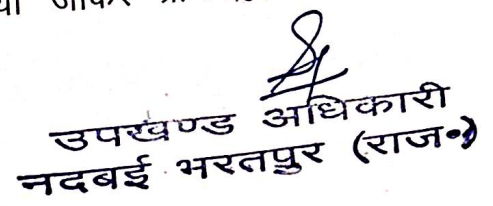 जाकर
उपखण्ड अधिकारी
नदबई भरतपुर (राज॰)